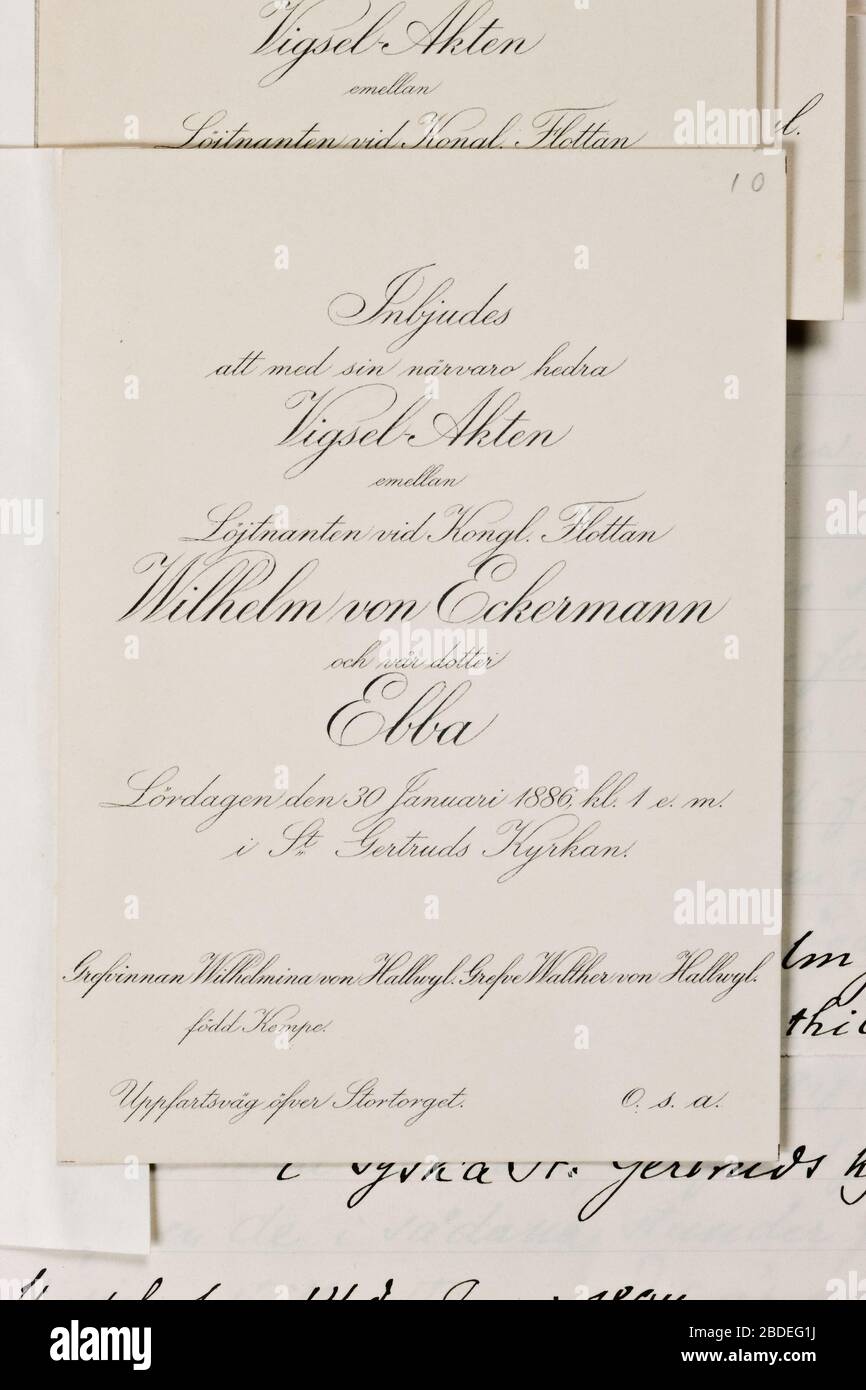 Vigsel-Akten
emellan
Löjtnanten vid Kongl. Flottan
l.
10
Inbjudes
att med sin närvaro hedra
Vigsel-Akten
emellan
Löjtnanten vid Kongl. Flottan
Wilhelm von Eckermann
och vår dotter
Ebba
Lördagen den 30 Januari 1886, kl. 1 e. m.
i St. Gertruds Kyrkan.
Grefvinnan Wilhelmina von Hallwyl. Grefve Walther von Hallwyl.
född Kempe.
Uppfartsväg öfver Stortorget. O. s. a.
i Tyska St. Gertruds
de i sådana stunder
alamy
Image ID: 2BDEG1J
www.alamy.com